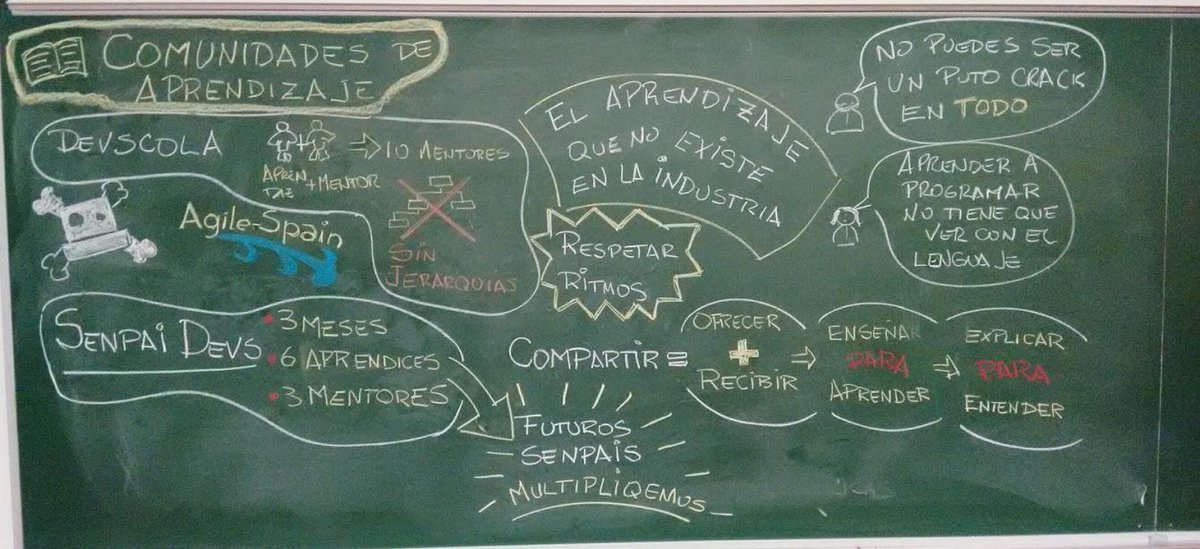 COMUNIDADES DE
APRENDIZAJE
DEVSCOLA
APREN
DIZ
+ MENTOR
⇒ 10 MENTORES
SIN
JERARQUÍAS
Agile-Spain
SENPAI DEVS
• 3 MESES
• 6 APRENDICES
• 3 MENTORES
FUTUROS
SENPAIS
MULTIPLIQEMOS
EL APRENDIZAJE
QUE NO EXISTE
EN LA INDUSTRIA
RESPETAR
RITMOS
COMPARTIR =
OFRECER
+
RECIBIR
⇒
ENSEÑAR
PARA
APRENDER
⇒
EXPLICAR
PARA
ENTENDER
NO PUEDES SER
UN PUTO CRACK
EN TODO
APRENDER A
PROGRAMAR
NO TIENE QUE
VER CON EL
LENGUAJE